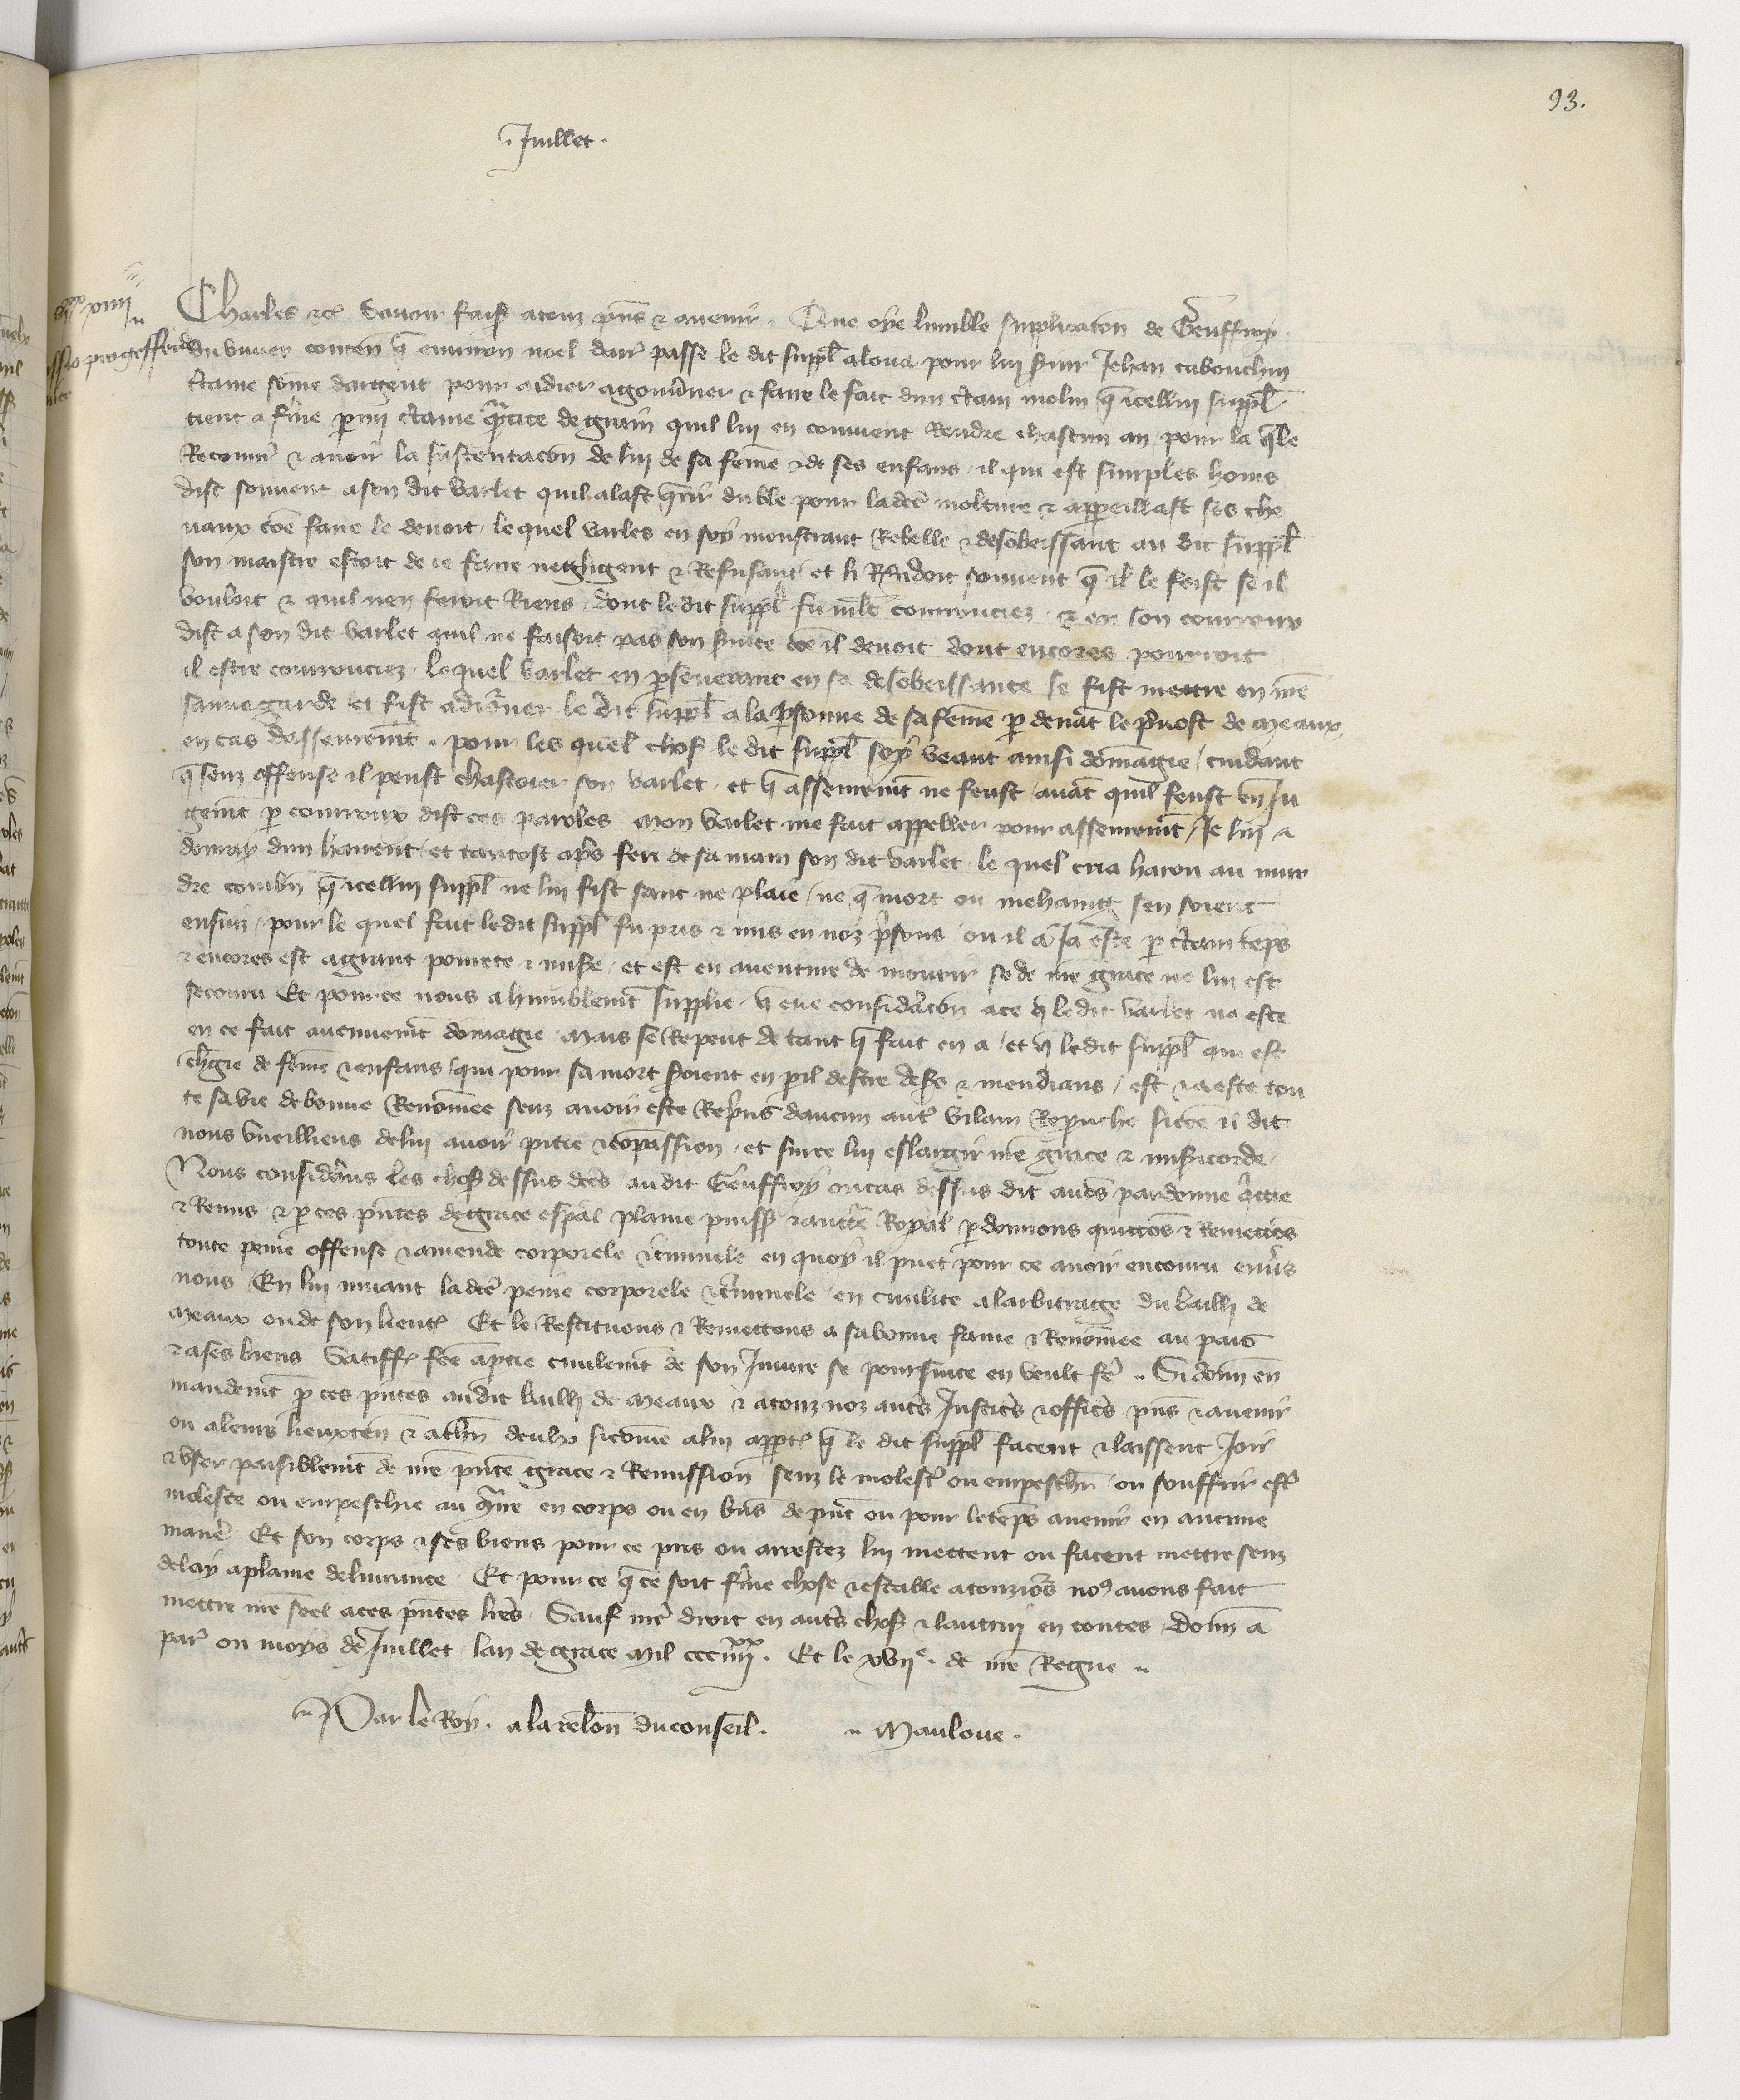 93.
. Juillet .
Charles etc̃ savoir fais̃ a touz pñs & avenir . Que oye lumble supplicac̃on de Geuffroy
du vivier conteñ q̃ environ noel dar̃ passe le dit suppl̃ aloua pour lui s̃vir Jehan cabouchin
c̃taine some dargent pour aidier a gouv̾ner & faire le fait dun c̃tain molin q̃ icellui suppl̃
tient a fme p̱mi c̃taine q̃ntite de grain quil lui en convient rendre chascun an / pour la q̃le
Recouvr̃ & avoir la sustentac̃on de lui de sa fem̃e & de ses enfans / il qui est simples homs
dist souvent a son dit varlet quil alast q̃rir du ble pour lad̃te molture & appeillast ses che
vaux cõe faire le devoit / le quel varles en soy monstrant Rebelle & desobeissant au dit suppl̃
son maistre estoit de ce faire negligent & Refusant et li Rñdoit souvent q̃ il le feist se il
vouloit & quil nen feroit Riens / dont le dit suppl̃ fu ml̃t courrouciez . & en son courroux
dist a son dit varlet quil ne faisoit pas son s̃vice cõe il devoit dont encores pourroit
il estre courrouciez . lequel varlet en p̱severant en sa desobeissance se fist mettre en nr̃e
sauvegarde et fist adj̾ner le dit suppl̃ a la p̱sonne de sa fem̃e p̱ devãt le p̾vost de Meaux
en cas dassemeñt . pour les quel̃ chos̃ le dit suppl̃ soy veant ainsi dom̃agie / cuidant
q̃ senz offense il peust chastoier son varlet . et q̃ asseuremñt ne feust / avãt quil feust eñ Ju
gemñt p̱ courroux dist ces paroles Mon varlet me fait appeller pour asseuremñt / Je lui
donray dun havent / et tantost ap̃s feri de sa main son dit varlet . le quel cria harou au mur
dre combñ q̃ icellui suppl̃ ne lui fist sanc ne plaie / ne q̃ mort ou mehaing sen soient
ensuiz / pour le quel fait ledit suppl̃ fu pris & mis en noz p̾sons ou il a Ja este p̱ c̃tain tẽps
& encores est a grant povrete & mis̃e . et est en aventure de mourir se de nr̃e grace ne lui est
secouru Et pour ce nous a humblemñt supplie . q̃ eue considãcon a ce q̃ ledit varlet na este
en ce fait aucunemñt dom̃agie Mais se Repent de tant q̃ fait en a / et q̃ ledit suppl̃ qui est
ch̾gie de fem̃e & enfans / qui pour sa mort s̃oient en peril destre des̃s & mendians / est & a este tou
te sa vie de bonne Renom̃ee senz avoir este Rep̾ns daucun aut̾ vilain Reprouche sicõe il dit
nous vueilliens de lui avoir pitie & cõpassion . et sur ce lui eslargir nr̃e grace & mis̃icorde .
Nous consid̾ans les chos̃ dessus d̃tes au dit Geuffroy ou cas dessus dit avõs pardonne q̃ttie
& Remis & p̱ ces p̃ntes de grace esp̃al plaine puiss̃ & auct̃e Royal p̱donnons quittõs & Remettõs
toute peine offense & amende corporele & c̃iminele en quoy il puet pour ce avoir encouru env̾s
nous En lui muant lad̃te peine corporele & c̃iminele en civilite a larbitrage du bailli de
Meaux ou de son lient̃ Et le Restituons & Remettons a sa bonne fame & Renom̃ee au pais
& a ses biens Satiff̃ f̃ce a p̱tie civilemñt de son Injure se poursuite en veult fẽ . Si donñ en
mandemñt p̱ ces p̃ntes au dit bailli de Meaux & a touz noz aut̾s Justic̾s & offic̾s p̃ns & avenir
ou a leurs lieuxteñ & a cl̃un deulx sicõme a lui app̱t̃ q̃ le dit suppl̃ facent & laissent Joir
& user paisiblemñt de nr̃e p̃nte grace & Remission senz le molest̾ ou empesch̾ / ou souffrir est̾
moleste ou empeschie au q̃ntre en corps ou en biẽs de p̃nt ou pour le tẽps avenir en aucune
maniẽ Et son corps & ses biens pour ce pris ou arrestez lui mettent ou facent mettre senz
delay a plaine delivrance . Et pour ce q̃ ce soit f̾me chose & estable a touziõs noꝰ avons fait
mettre nr̃e seel a ces p̃ntes l̃res . Sauf nr̃e droit en aut̾s chos̃ & lautrui en toutes . donñ a
par̾ ou moys de Juillet lan de grace Mil ccciiii^xx . Et le xvii^e . de nr̃e Regne
Par le Roy . a la relõn du conseil . Mauloue .